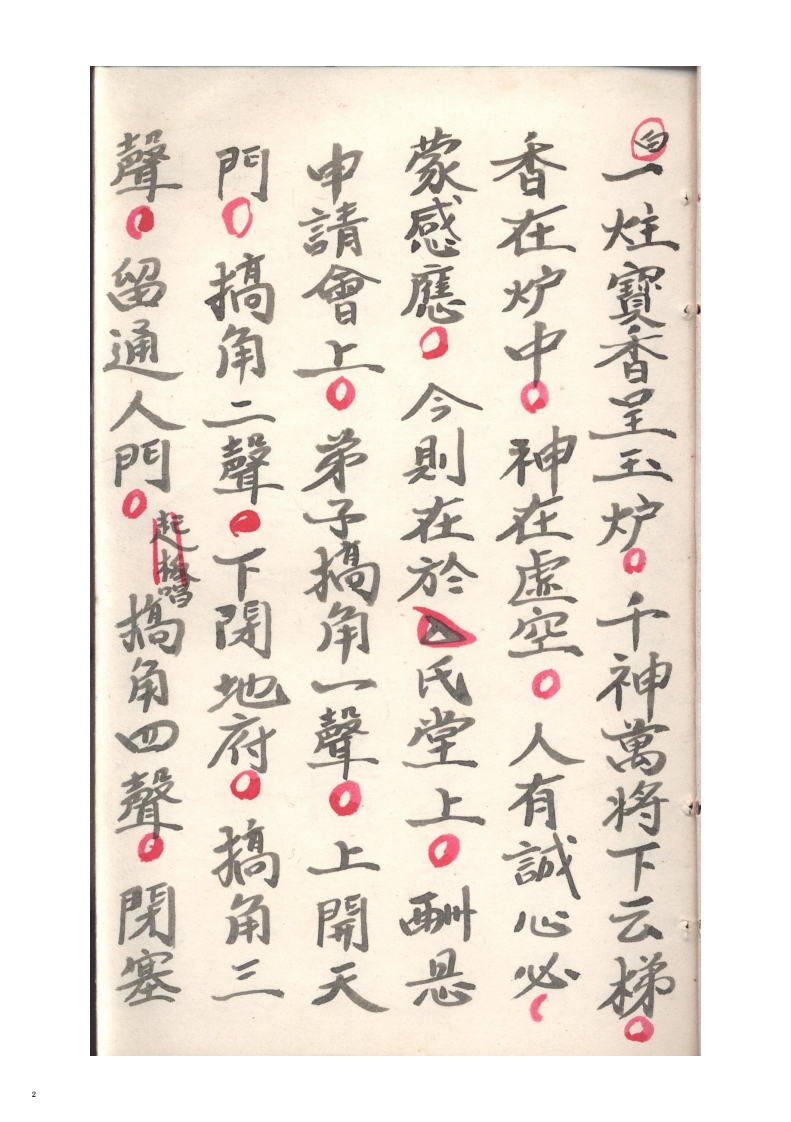 白
一炷寶香呈玉炉千神萬將下云梯
香在炉中神在虛空人有誠心必
蒙感應今則在於厶氏堂上酬恩
申請會上弟子搞角一聲上開天
門搞角二聲下閉地府搞角三
聲留通人門
搞角四聲閉塞
2